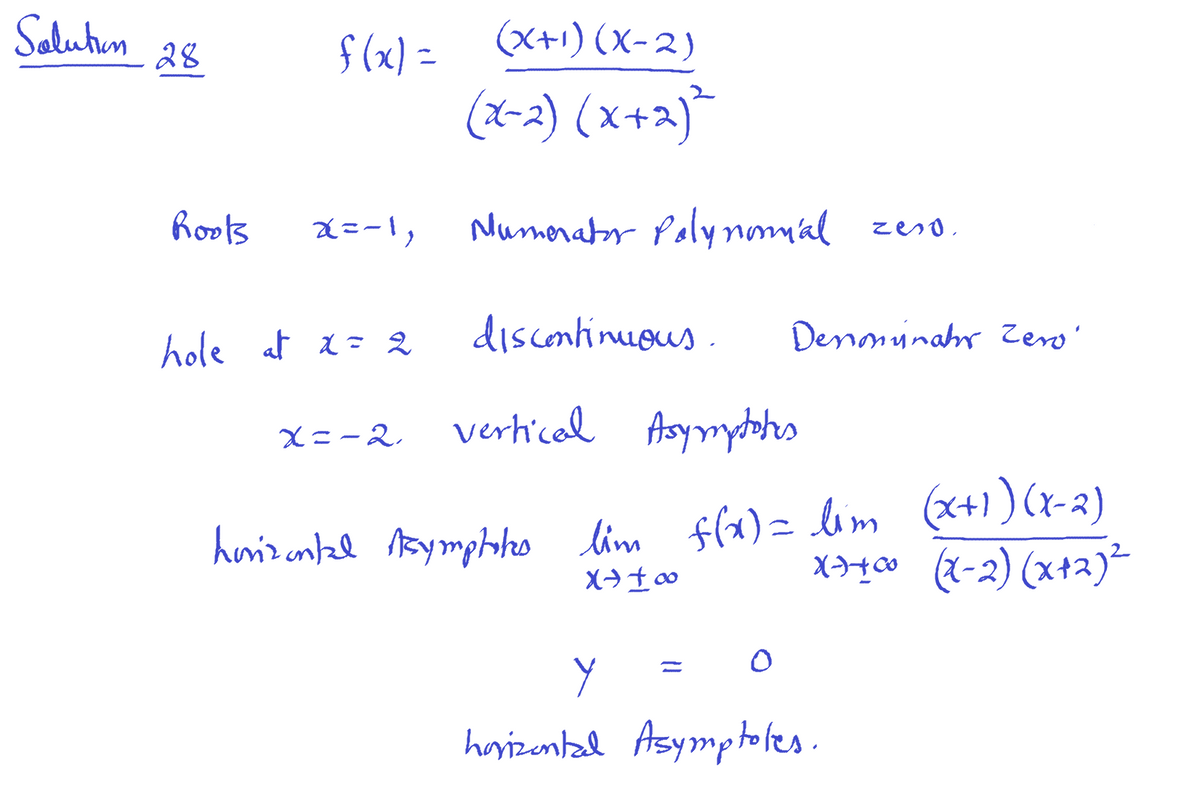 Solution 28 f(x) = (x+1)(x-2) / (x-2)(x+2)²
Roots x=-1, Numerator Polynomial zero.
hole at x = 2 discontinuous. Denominator zero.
x=-2. vertical Asymptotes
horizontal Asymptotes lim x→±∞ f(x) = lim x→±∞ (x+1)(x-2) / (x-2)(x+2)²
y = 0
horizontal Asymptotes.